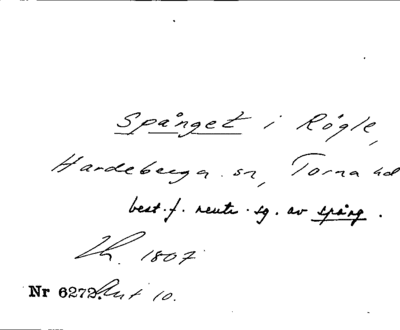 Spånget i Rögle,
Hardeberga sn, Torna hd
best. f. neutr. sg. av spång.
1807
Nr 6272. 10.